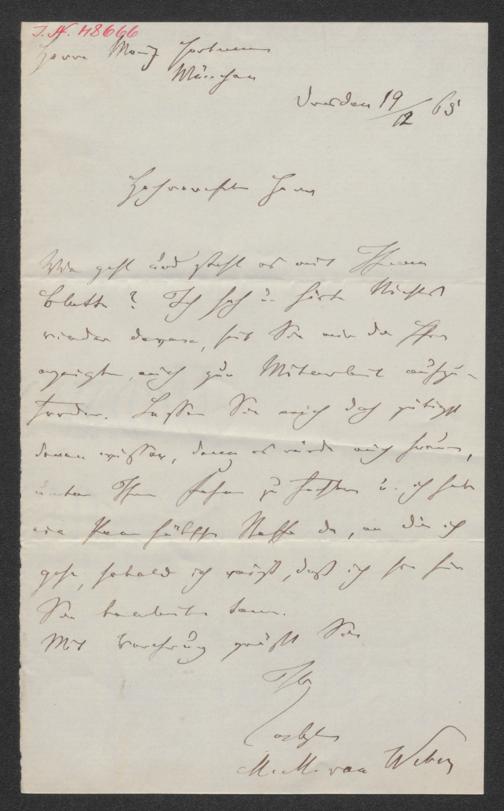 I. N. 48666
Herrn Moriz Hartmann
München
Dresden 19/12 65
Hochverehrter Herr
Wie geht und steht es mit Ihrem
Blatte? Ich seh u. höre Nichts
wieder davon, seit Sie mir die Ehre
erzeigten, mich zur Mitarbeit aufzu-
fordern. Lassen Sie mich doch gütigst
davon wissen, denn es würde mich freuen,
unter Ihrer Fahne zu fechten u. ich habe
ein Paar hübsche Stoffe da, an die ich
gehe, sobald ich weiß, daß ich sie für
Sie bearbeiten kann.
Mit Verehrung grüßt Sie
Ihr
M. M. von Weber